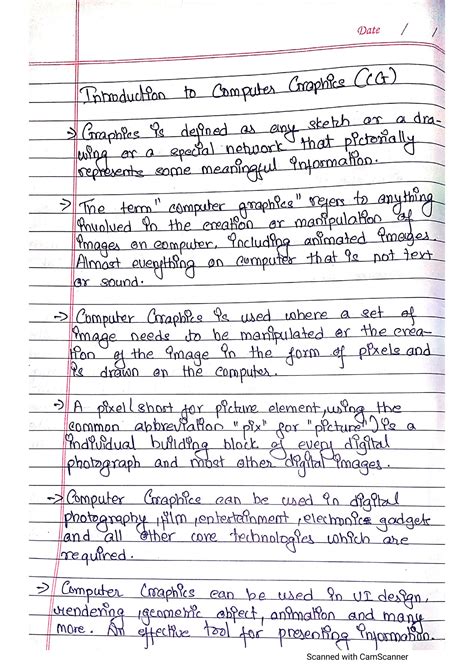 Date / /
Introduction to Computer Graphics (CG)
→ Graphics is defined as any sketch or a dra-
wing or a special network that pictorially
represents some meaningful information.
→ The term "computer graphics" refers to anything
involved in the creation or manipulation of
images on computer, including animated images.
Almost everything on computer that is not text
or sound.
→ Computer Graphics is used where a set of
image needs to be manipulated or the crea-
tion of the image in the form of pixels and
is drawn on the computer.
→ A pixel (short for picture element, using the
common abbreviation "pix" for "picture") is a
individual building block of every digital
photograph and most other digital images.
→ Computer Graphics can be used in digital
photography, film, entertainment, electronics gadgets
and all other core technologies which are
required.
→ Computer Graphics can be used in UI design,
rendering, geometric object, animation and many
more. An effective tool for presenting information.
Scanned with CamScanner